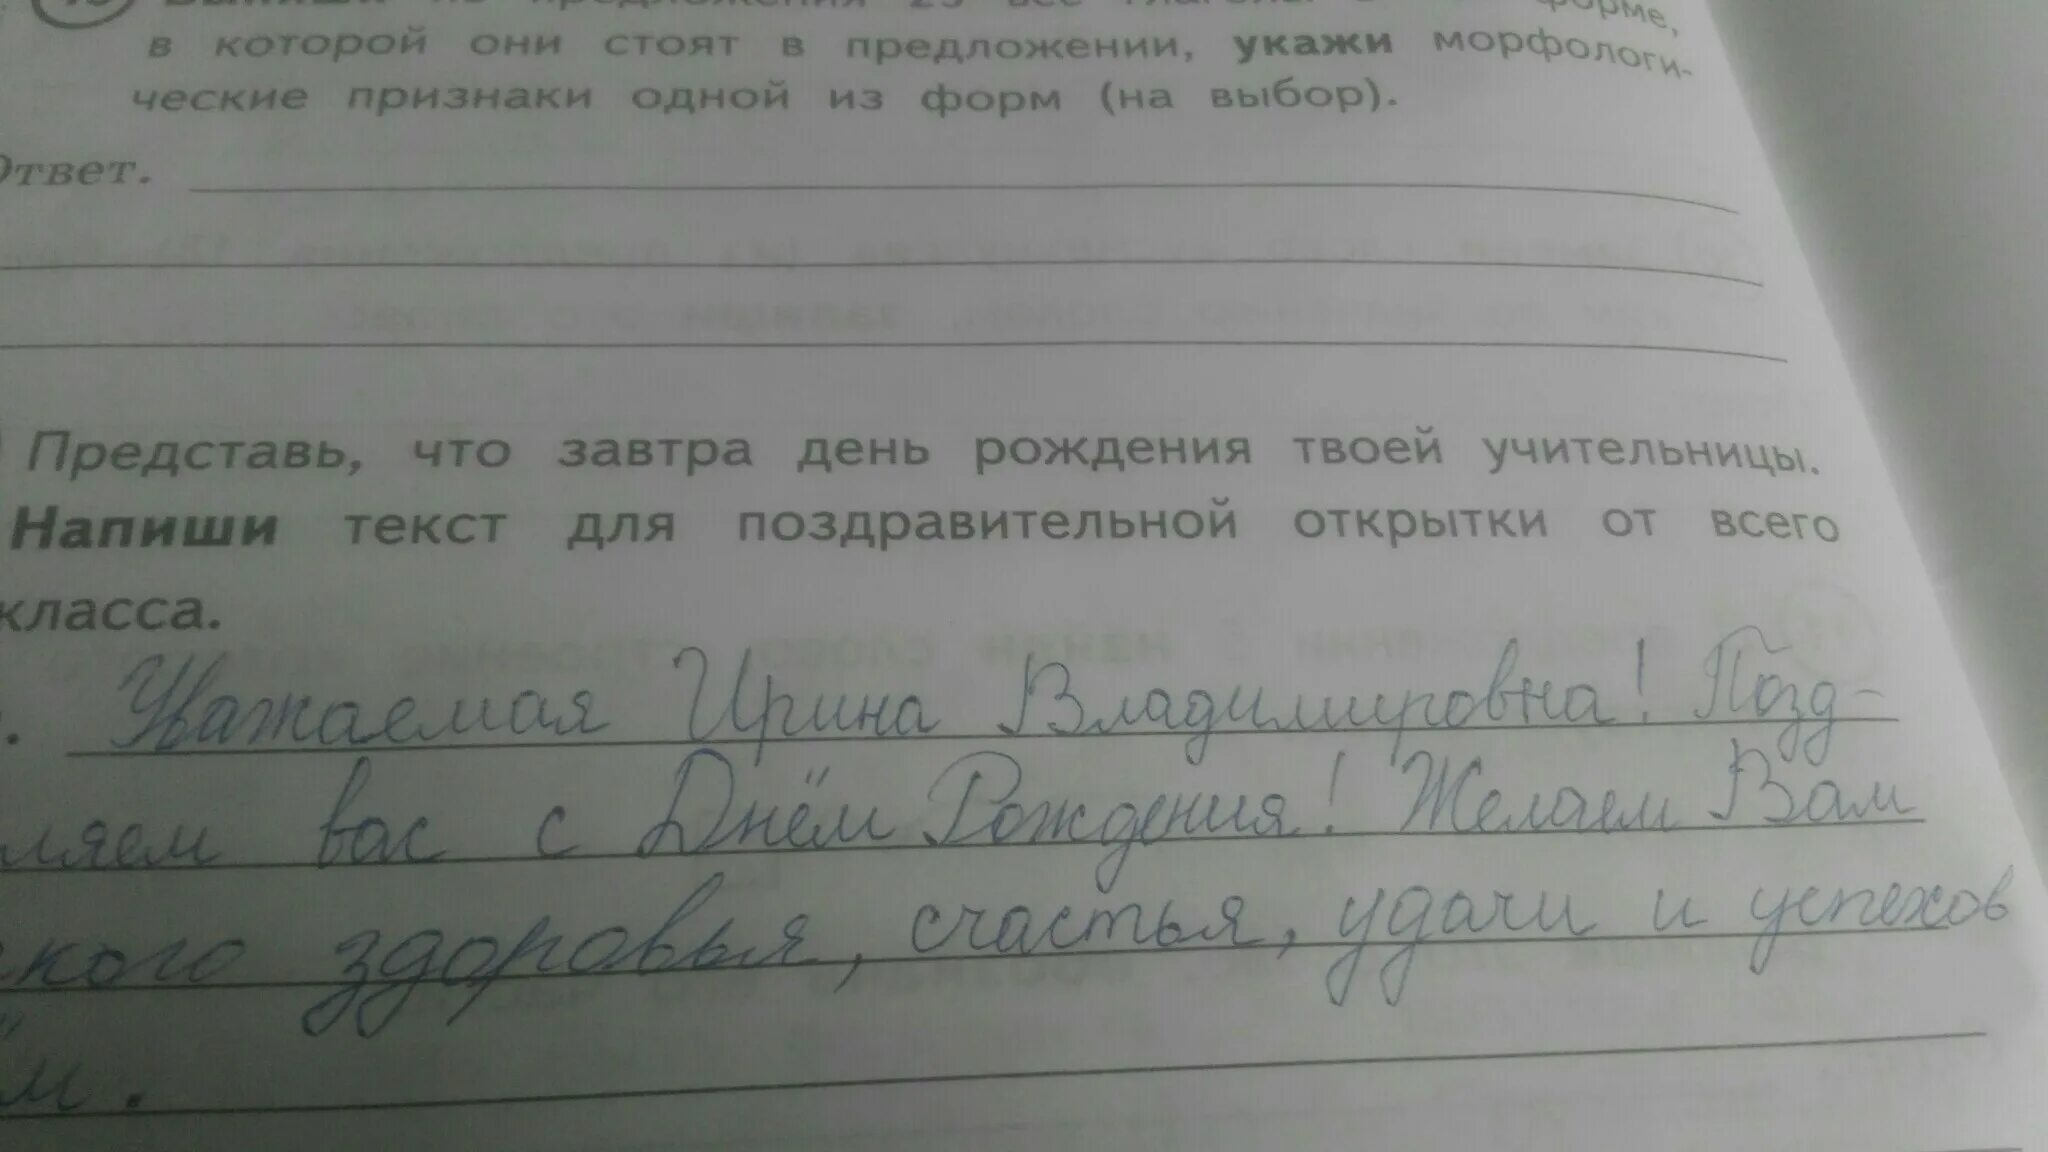 предложения 25 все глаголы форме,
в которой они стоят в предложении, укажи морфологи-
ческие признаки одной из форм (на выбор).
Ответ.
Представь, что завтра день рождения твоей учительницы.
Напиши текст для поздравительной открытки от всего
класса.
Уважаемая Ирина Владимировна! Позд-
ляем вас с Днём Рождения! Желаем Вам
кого здоровья, счастья, удачи и успехов
м.